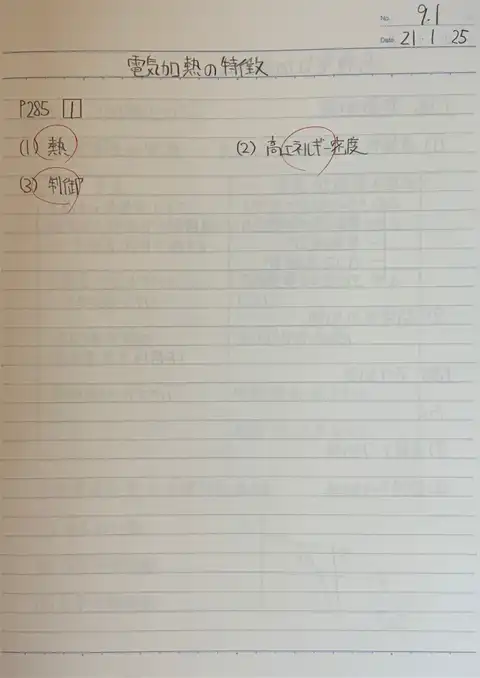 No. 9.1
Date 21 1 25
電気加熱の特徴
P285 1
(1) 熱 (2) 高エネルギー密度
(3) 制御